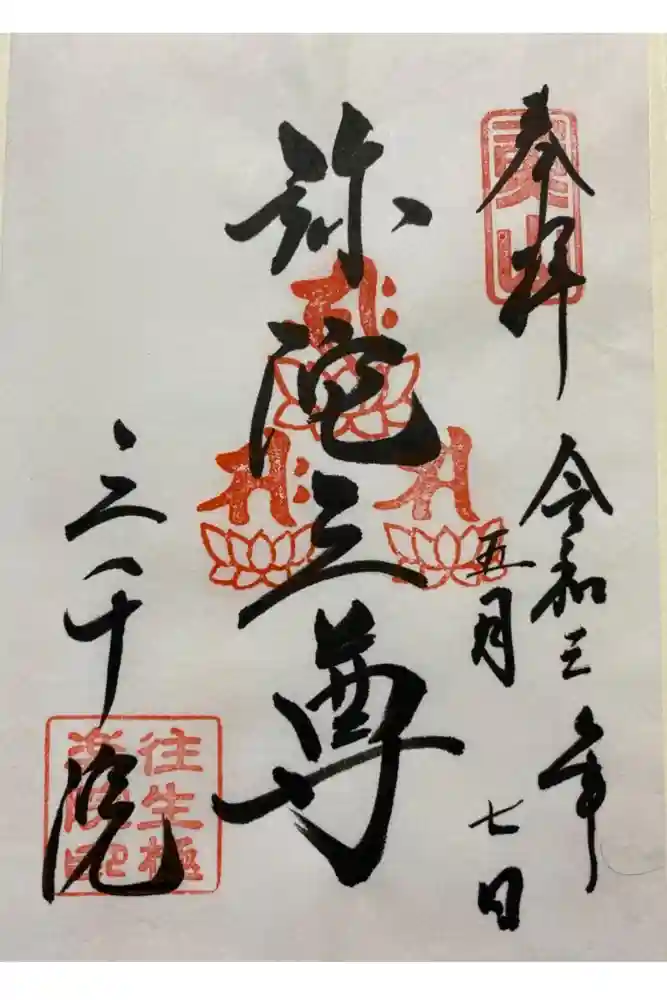 奉拝
令和三年
五月
七日
弥陀三尊
三千院
往生極
楽院